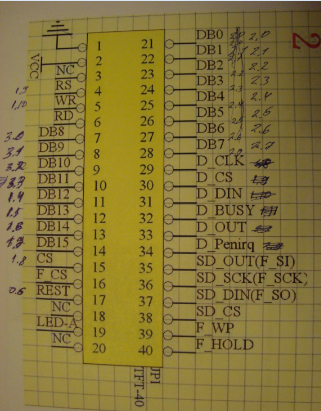 2
1 21 DB0 2.0
VCC 2 22 DB1 2.1
NC 3 23 DB2 2.2
RS 4 24 DB3 2.3
1.10 WR 5 25 DB4 2.4
RD 6 26 DB5 2.5
3.0 DB8 7 27 DB6 2.6
3.1 DB9 8 28 DB7 2.7
3.2 DB10 9 29 D_CLK
3.3 DB11 10 30 D_CS
1.4 DB12 11 31 D_DIN
1.5 DB13 12 32 D_BUSY
1.6 DB14 13 33 D_OUT
1.7 DB15 14 34 D_Penirq
1.8 CS 15 35 SD_OUT(F_SI)
F_CS 16 36 SD_SCK(F_SCK)
0.6 REST 17 37 SD_DIN(F_SO)
NC 18 38 SD_CS
LED-A 19 39 F_WP
NC 20 40 F_HOLD
JP1
TFT-40